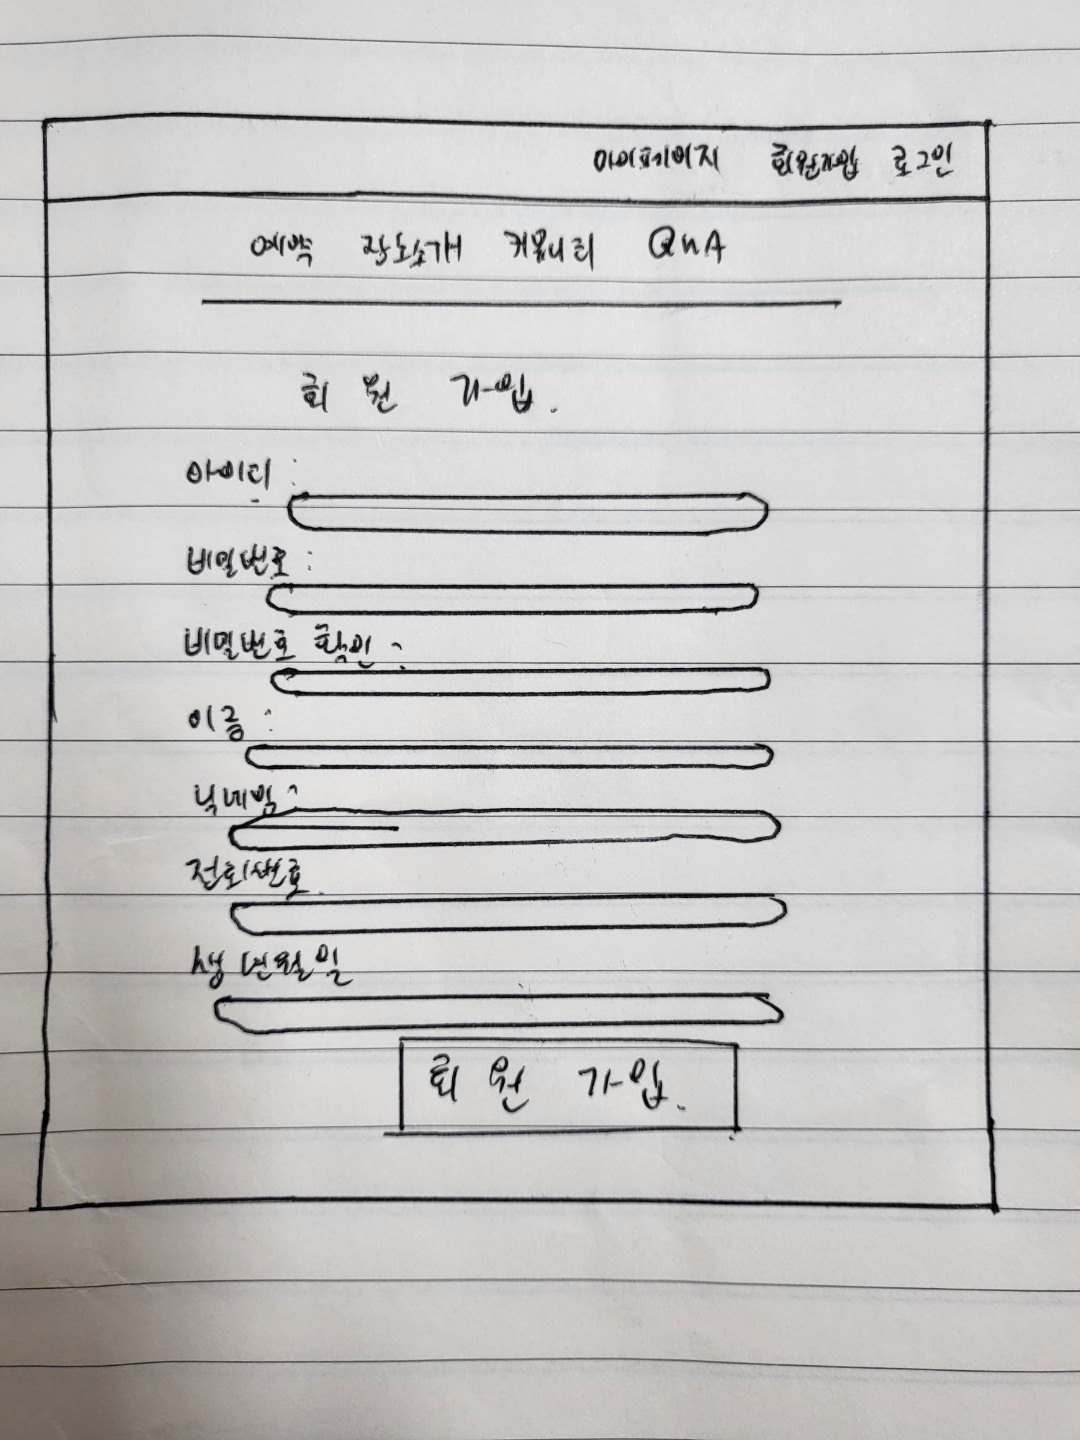 마이페이지 회원가입 로그인
예약 장소소개 커뮤니티 QnA
회원 가입.
아이디 :
비밀번호 :
비밀번호 확인 :
이름 :
닉네임 :
전화번호
생년월일
회원 가입.